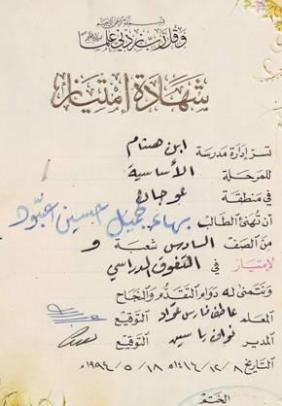 بسم الله الرحمن الرحيم
وقل رب زدني علما
شهادة امتياز
تسر إدارة مدرسة ابن هشام
للمرحلة الأساسية
في منطقة عوجان
أن تهنئ الطالب بهاء جميل حسين عبود
من الصف السادس شعبة و
لإمتياز في التفوق الدراسي
وتتمنى له دوام التقدم والنجاح
المعلم عاطف فارس عواد التوقيع
المدير فواز ياسين التوقيع
التاريخ ٨ / ١٢ / ١٤١٤هـ ١٨ / ٥ / ١٩٩٤م
الختم